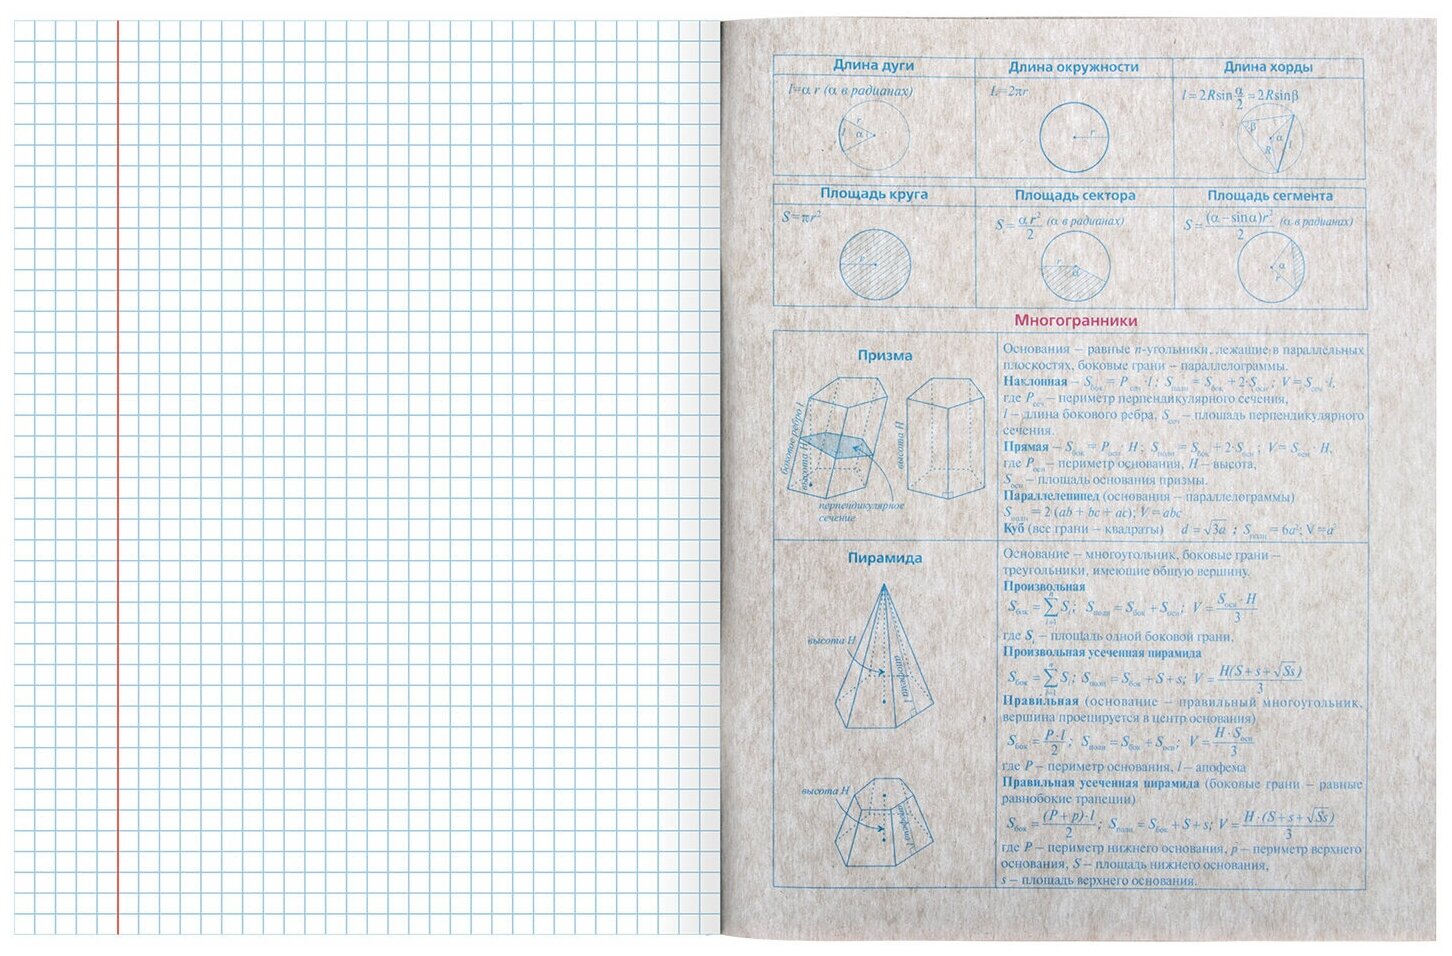 Длина дуги
l=α r (α в радианах)
r
l α
Длина окружности
L=2πr
r
Длина хорды
l = 2Rsin α/2 = 2Rsinβ
β
α
R l
Площадь круга
S=πr²
r
Площадь сектора
S = α r²/2 (α в радианах)
r
α
Площадь сегмента
S = (α – sinα)r²/2 (α в радианах)
α
r
Многогранники
Призма
боковое ребро l
высота H
высота H
перпендикулярное
сечение
Основания – равные n-угольники, лежащие в параллельных
плоскостях, боковые грани – параллелограммы.
Наклонная – Sбок = Pсеч · l ; Sполн = Sбок + 2·Sосн ; V = Sсеч · l,
где Pсеч – периметр перпендикулярного сечения,
l – длина бокового ребра, Sсеч – площадь перпендикулярного
сечения.
Прямая – Sбок = Pосн · H ; Sполн = Sбок + 2·Sосн ; V = Sосн · H,
где Pосн – периметр основания, H – высота,
Sосн – площадь основания призмы.
Параллелепипед (основания – параллелограммы)
Sполн = 2 (ab + bc + ac); V = abc
Куб (все грани – квадраты) d = √3a ; Sполн = 6a²; V = a³
Пирамида
высота H
апофема l
высота H
апофема l
Основание – многоугольник, боковые грани –
треугольники, имеющие общую вершину.
Произвольная
Sбок = ∑ⁿᵢ₌₁ Sᵢ; Sполн = Sбок + Sосн; V = Sосн · H/3
где Sᵢ – площадь одной боковой грани,
Произвольная усеченная пирамида
Sбок = ∑ⁿᵢ₌₁ Sᵢ; Sполн = Sбок + S + s; V = H(S + s + √Ss)/3
Правильная (основание – правильный многоугольник,
вершина проецируется в центр основания)
Sбок = P · l/2 ; Sполн = Sбок + Sосн; V = H · Sосн/3
где P – периметр основания, l – апофема
Правильная усеченная пирамида (боковые грани – равные
равнобокие трапеции)
Sбок = (P + p)·l/2 ; Sполн = Sбок + S + s; V = H · (S + s + √Ss)/3
где P – периметр нижнего основания, p – периметр верхнего
основания, S – площадь нижнего основания,
s – площадь верхнего основания.